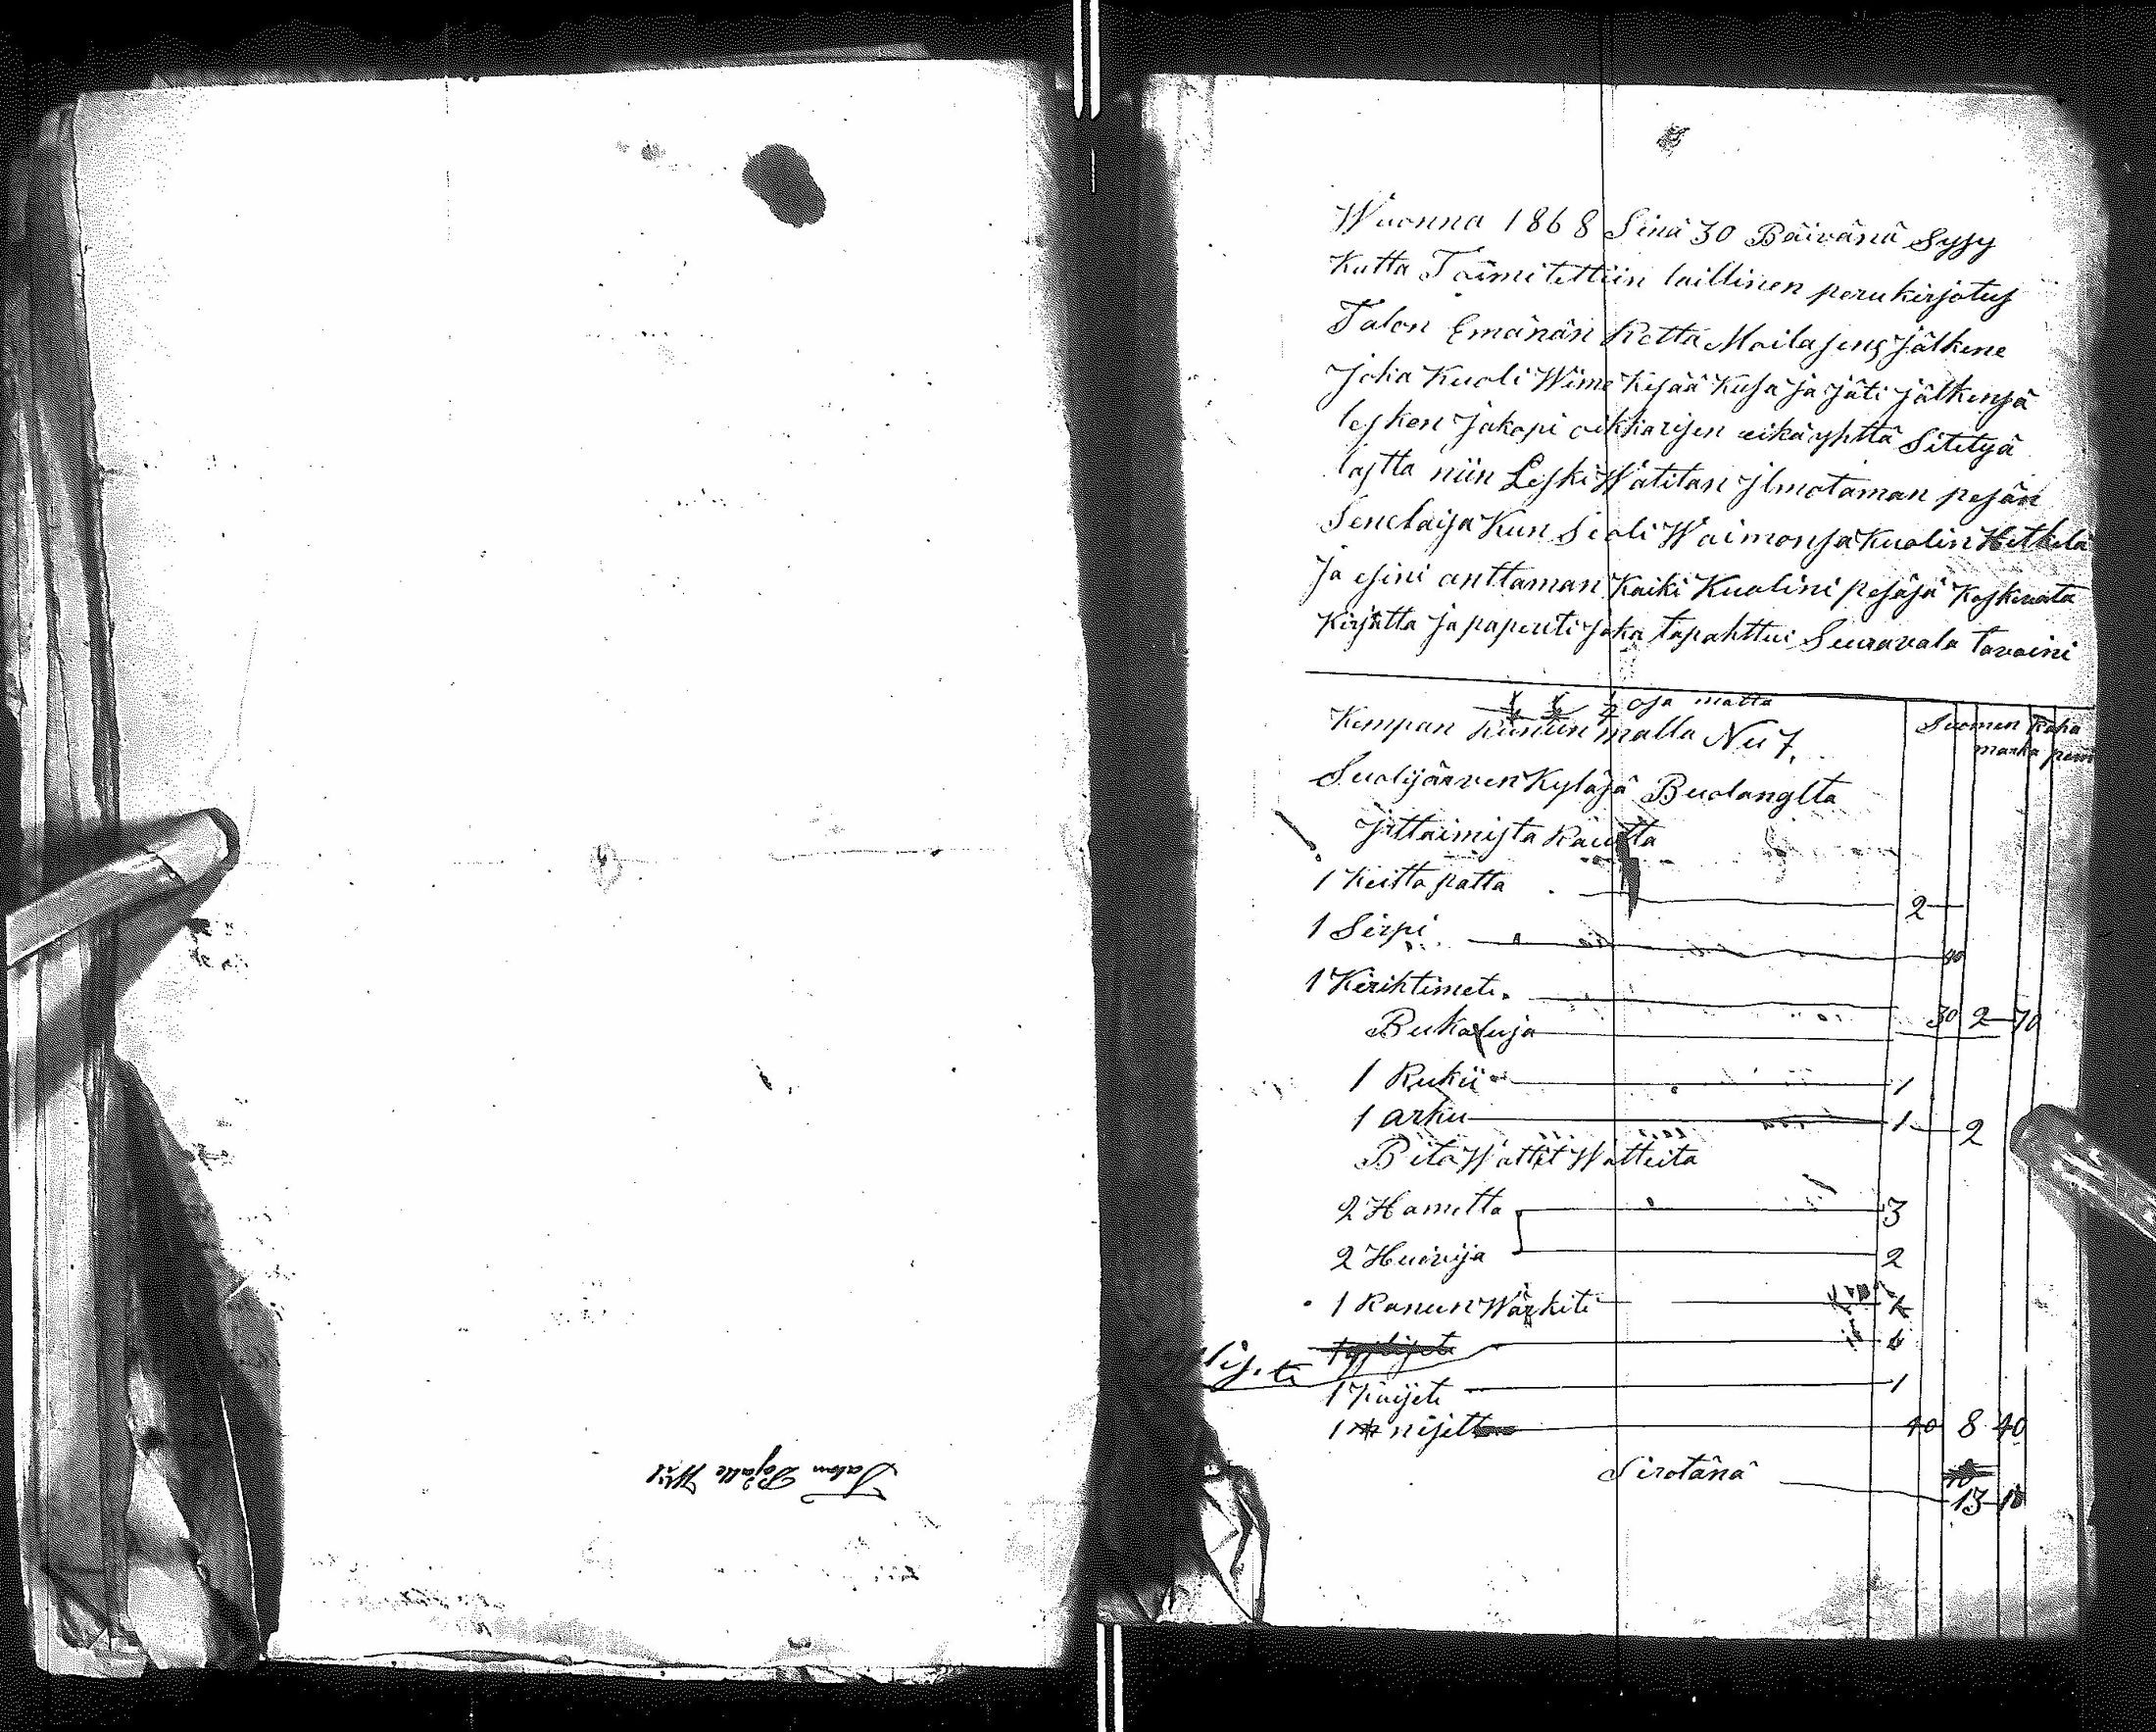 Talon Pojalle
Wuonna 1868 Sinä 30 Bäivänä Sysy
Kutta Toimitettiin laillinen perukirjotus
Talon Emänän Ketta Moilasens jälkene
Joka Kuoli Wime Kesää Kusa ja jäti jälkensä
lesken Jakopi oikkarisen eikä yhttä Sitetyä
lastta niin Leski Wätitan Jlmotaman pesän
Senelaisa Kun Se oli Waimonsa Kuolin Hetkelä
Ja esini anttaman Kaiki Kuolini pesäsä Koskevata
Kirjatta Ja paperiti Joka tapahttui Seuravala tavaini
osa matta
Kempan Kunun malla No 7.
Suomen Raha
marka peni
Suolijärven Kyläsä Buolanglta
Jttaimista Rautta
1 Keitta patta 2
1 Sirpi 40
1 Kerihtimeti 30 2 70
Bukaluja
1 Rukii 1
1 arku 1 2
Bitä Wattit Watteita
2 Hametta 3
2 Huivija 2
1 Kanun Wärkiti
1
1 nijett 40 8 40
Sirotänä 13 10